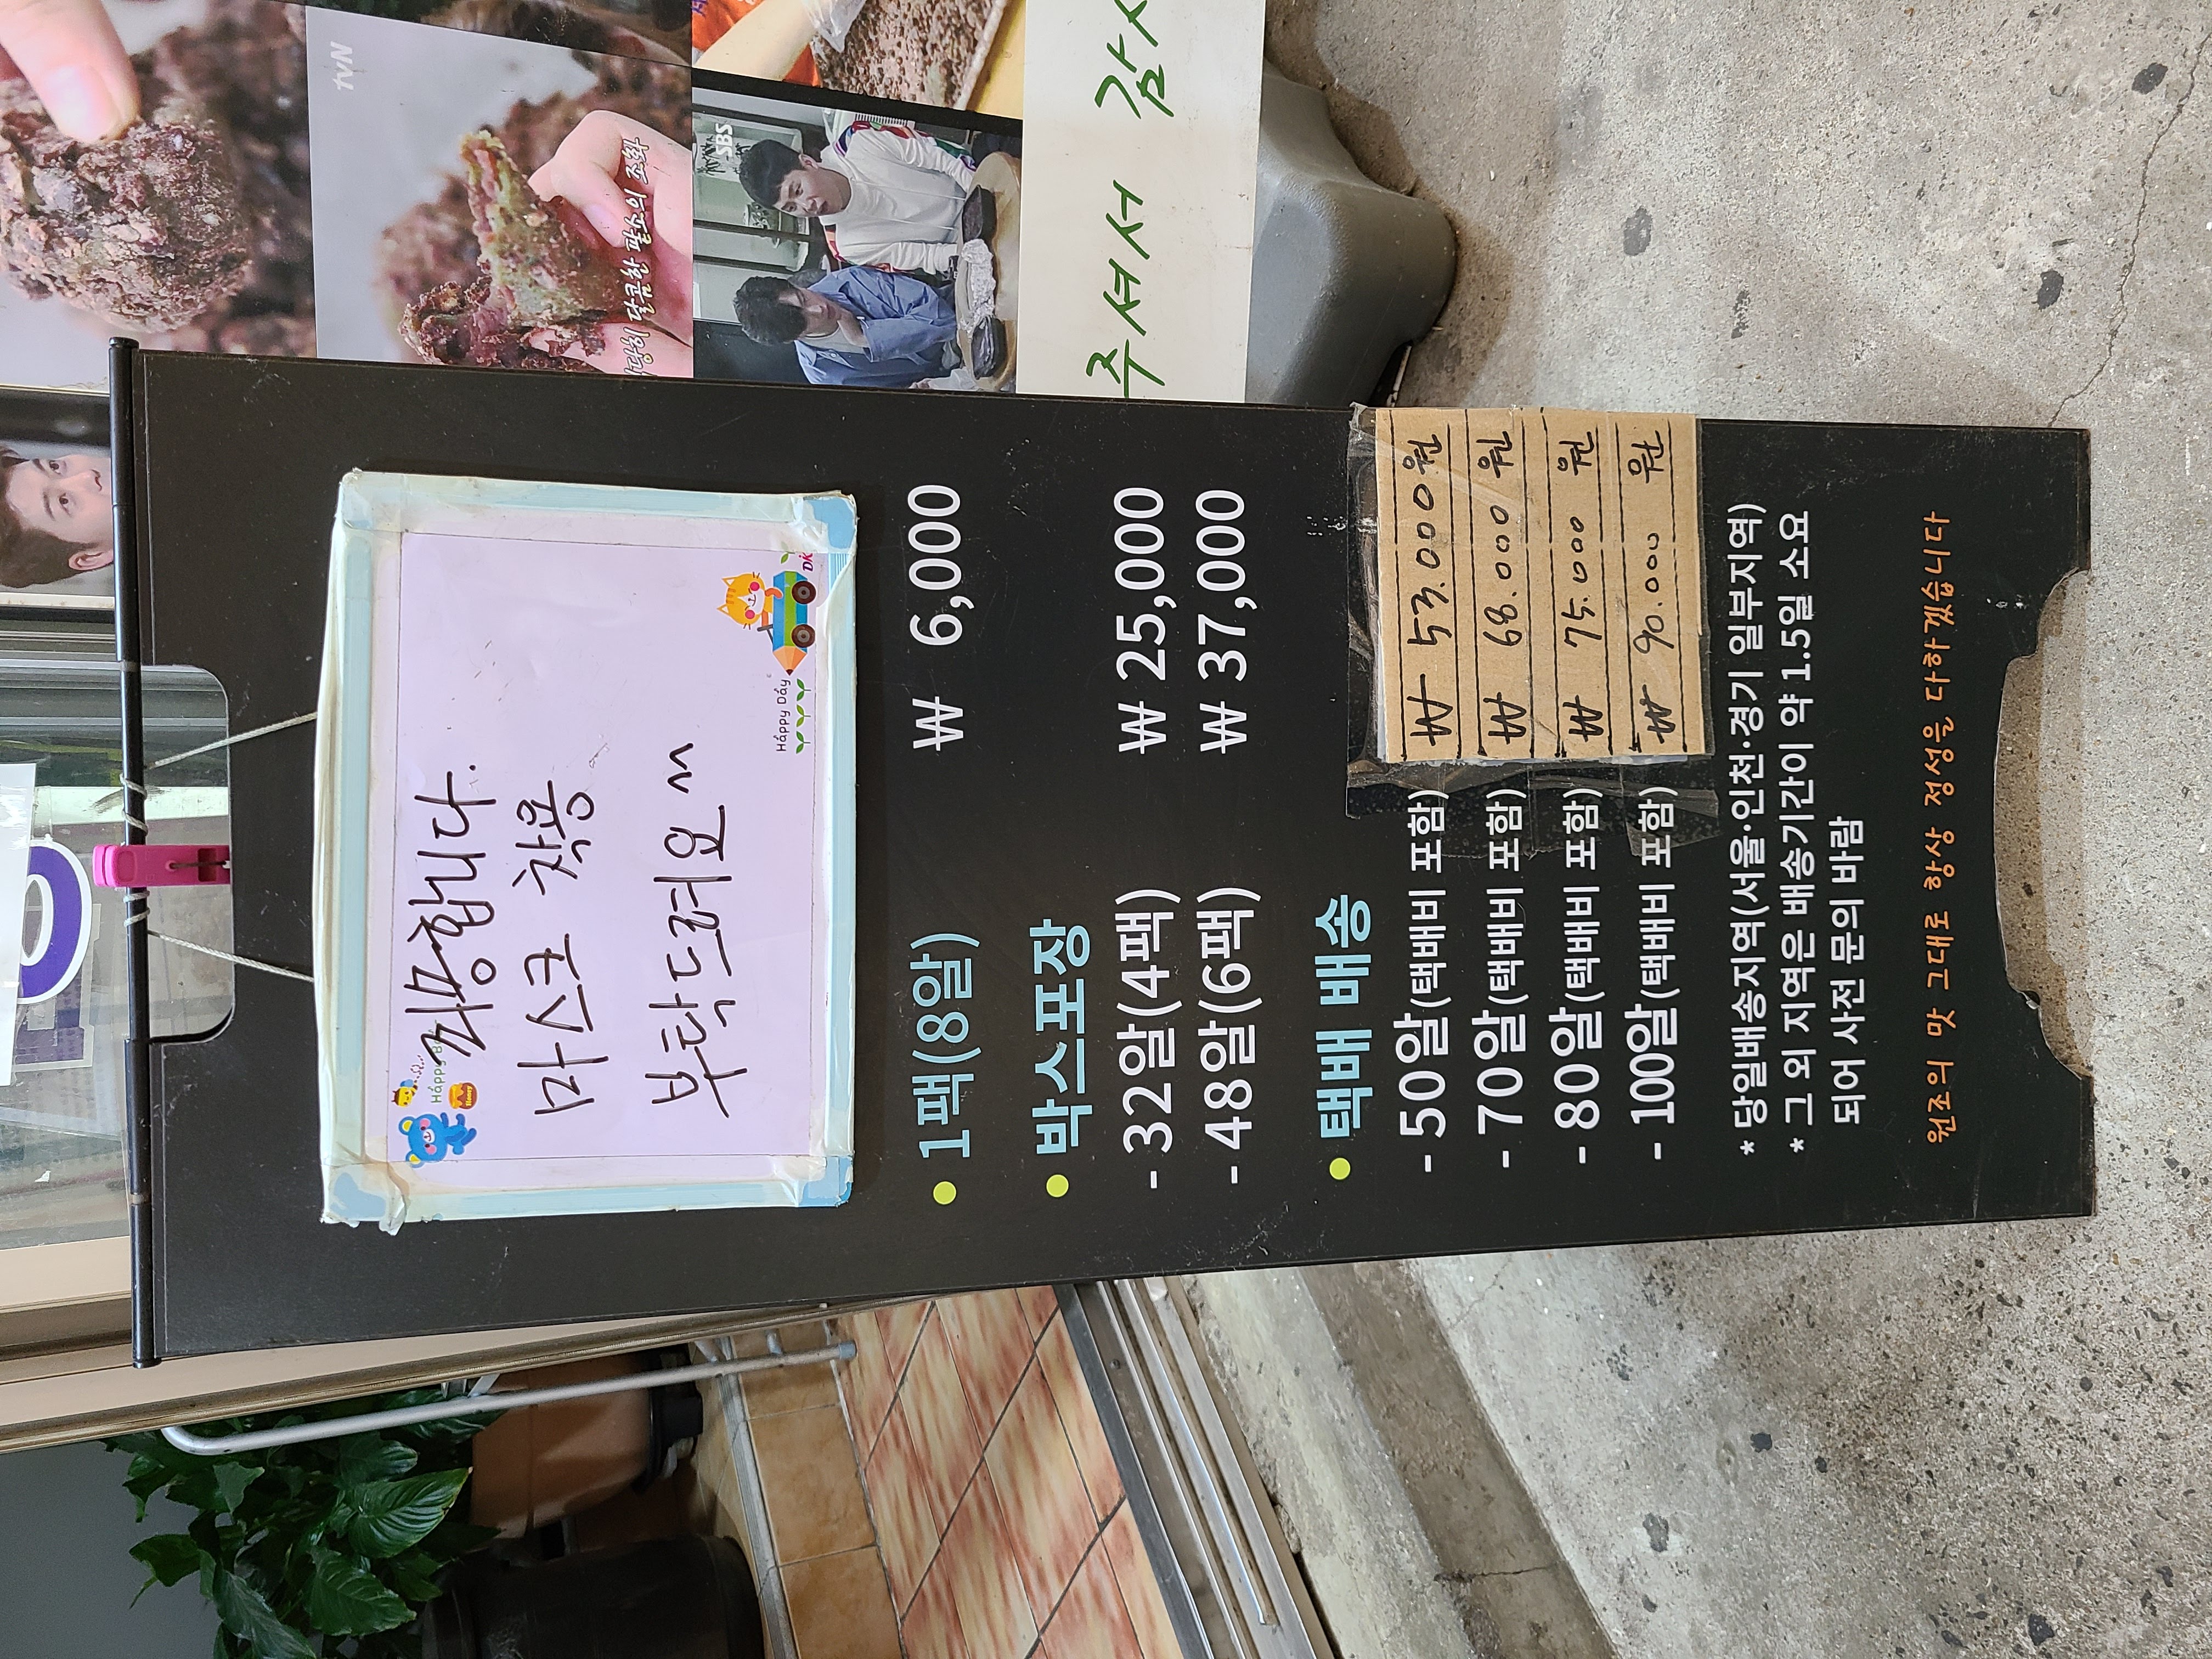 죄송합니다.
마스크 착용
부탁드려요
Happy Day
• 1팩(8알) ₩ 6,000
• 박스포장
- 32알(4팩) ₩ 25,000
- 48알(6팩) ₩ 37,000
• 택배 배송
- 50알(택배비 포함) ₩ 53.000원
- 70알(택배비 포함) ₩ 68.000원
- 80알(택배비 포함) ₩ 75.000원
- 100알(택배비 포함) ₩ 90.000원
* 당일배송지역(서울·인천·경기 일부지역)
* 그 외 지역은 배송기간이 약 1.5일 소요
되어 사전 문의 바람
원조의 맛 그대로 항상 정성을 다하겠습니다
tvN
달콤한 팥소의 조화
SBS
주셔서